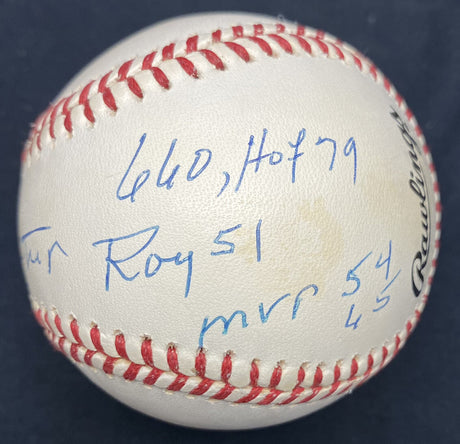 660, Hof 79
Roy 51
MVP 54
65
Rawlings